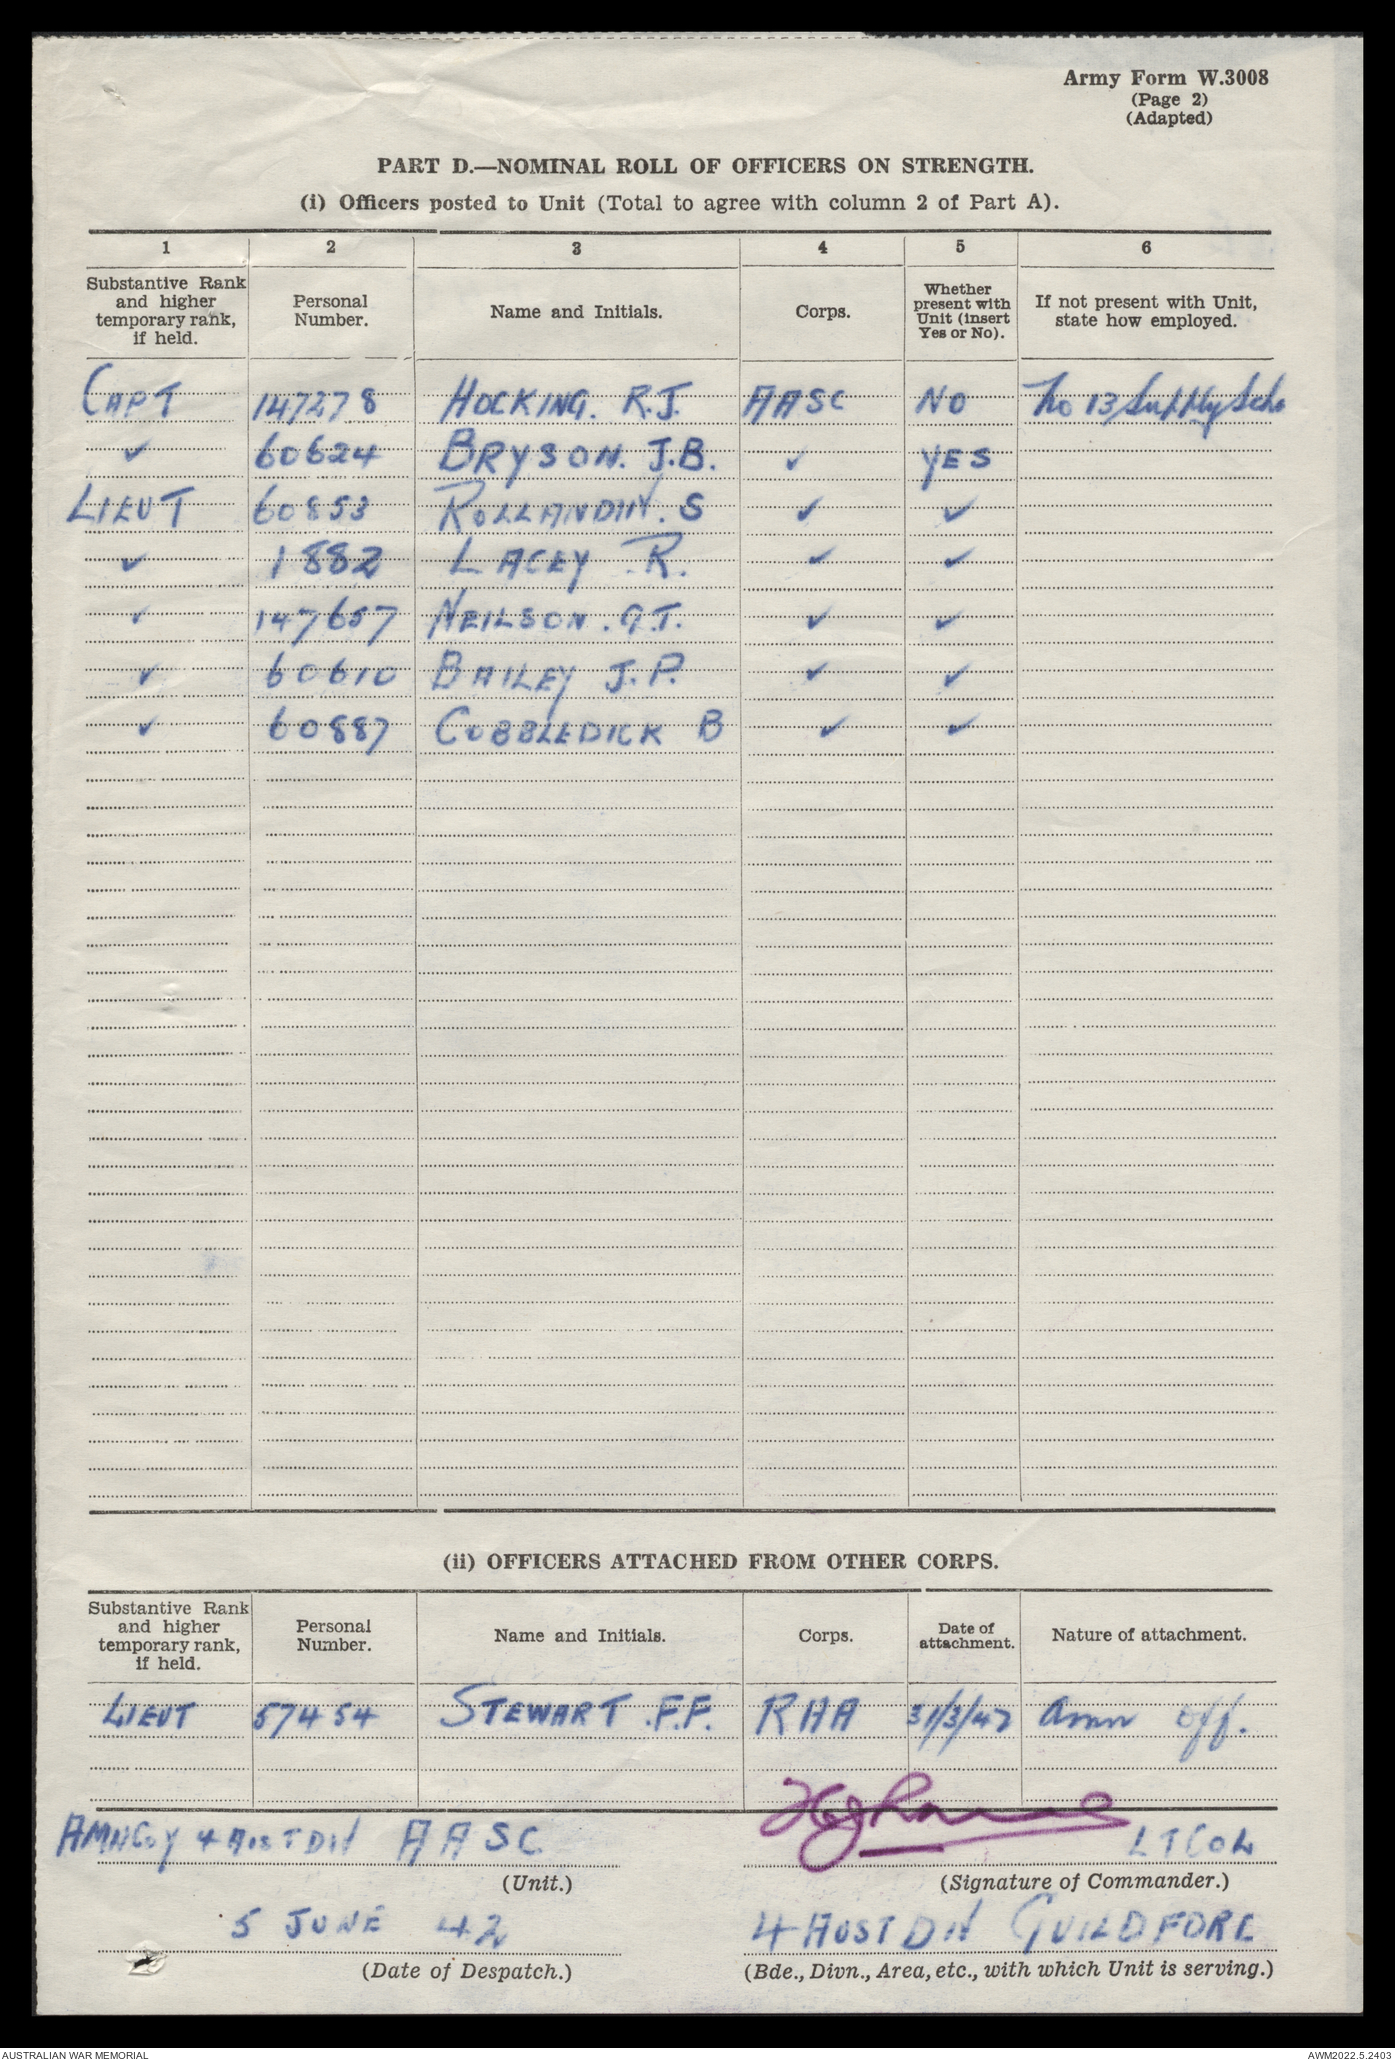 Army Form W.3008
(Page 2)
(Adapted)
PART D.—NOMINAL ROLL OF OFFICERS ON STRENGTH.
(i) Officers posted to Unit (Total to agree with column 2 of Part A).
1 2 3 4 5 6
Substantive Rank and higher temporary rank, if held. Personal Number. Name and Initials. Corps. Whether present with Unit (insert Yes or No). If not present with Unit, state how employed.
CAPT 147278 HOCKING. R.J. AASC NO No 13
✓ 60624 BRYSON. J.B. ✓ YES
LIEUT 60853 S ✓ ✓
✓ 1882 LACEY R. ✓ ✓
✓ 147657 NEILSON. G.T. ✓ ✓
✓ 60610 BAILEY J.P. ✓ ✓
✓ 60887 COBBLEDICK B ✓ ✓
(ii) OFFICERS ATTACHED FROM OTHER CORPS.
Substantive Rank and higher temporary rank, if held. Personal Number. Name and Initials. Corps. Date of attachment. Nature of attachment.
LIEUT 57454 STEWART .F.F. RHA 31/3/42 Amn off.
AMNCOY 4 AUST DIV AASC LTCOL
(Unit.) (Signature of Commander.)
5 JUNE 42 4 AUST DIV GUILDFORD
(Date of Despatch.) (Bde., Divn., Area, etc., with which Unit is serving.)
AUSTRALIAN WAR MEMORIAL AWM2022.5.2403